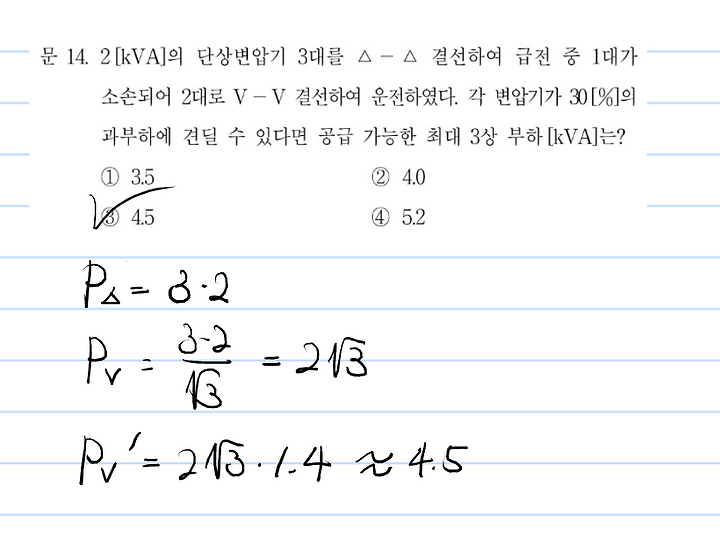 문 14. 2[kVA]의 단상변압기 3대를 △-△ 결선하여 급전 중 1대가
소손되어 2대로 V-V 결선하여 운전하였다. 각 변압기가 30[%]의
과부하에 견딜 수 있다면 공급 가능한 최대 3상 부하[kVA]는?
① 3.5 ② 4.0
③ 4.5 ④ 5.2
P△ = 3·2
Pv = 3·2/√3 = 2√3
Pv' = 2√3·1.4 ≈ 4.5